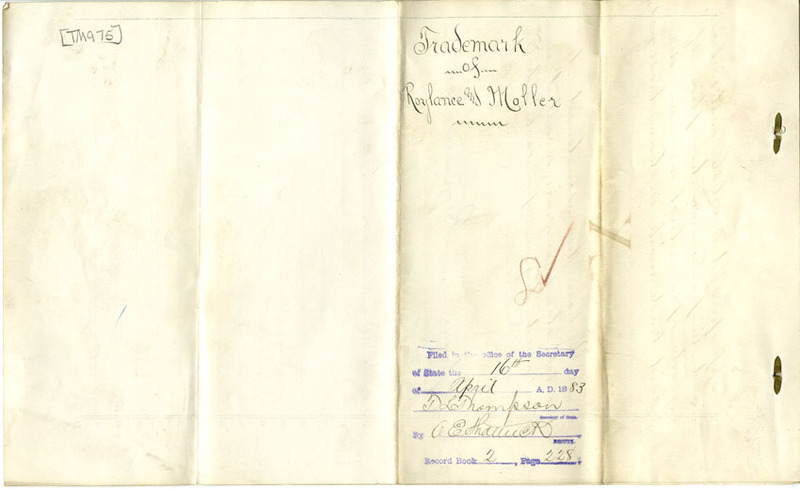 [TM975]
Trademark
of
Roylance & Moller
Filed in the office of the Secretary
of State the 16th day
of April A.D. 1883
T. L. Thompson
Secretary of State.
By A E Shattuck
DEPUTY.
Record Book 2, Page 228